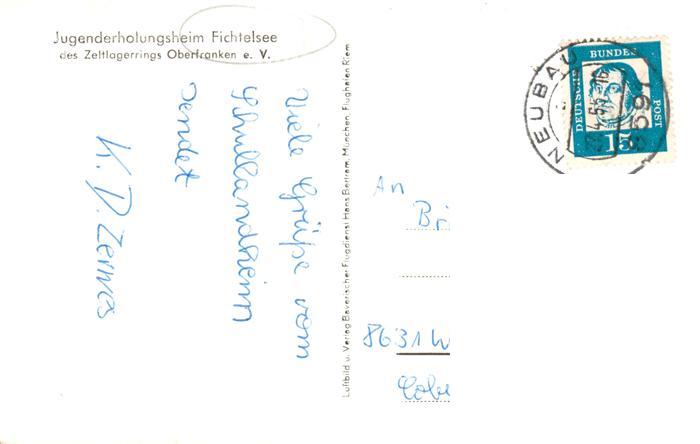 Jugenderholungsheim Fichtelsee
des Zeltlagerrings Oberfranken e. V.
Viele Grüße vom
Schullandheim
sendet
K. D. Zermes
Luftbild u. Verlag Bayerischer Flugdienst Hans Bertram, München, Flughafen Riem
An
Bri
8631 W
Cobe
NEUBAU
8591
DEUTSCHE
BUNDES
POST
15